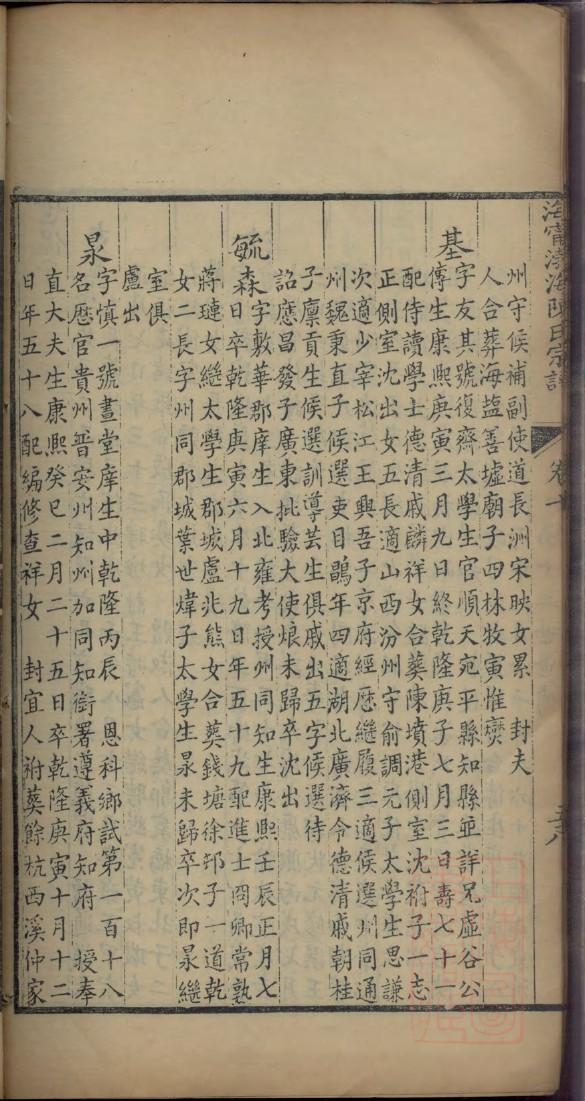 海寧渤海陳氏宗譜
卷十
州守候補副使道長洲宋映女累 封夫
人合葬海塩善墟廟子四林牧寅惟爕
基
字友其號復齋太學生官順天宛平縣知縣並詳兄虛谷公
傳生康熙庚寅三月九日終乾隆庚子七月三日壽七十一
配侍讀學士德清戚麟祥女合葬陳墳港側室沈祔子一志
正側室沈出女五長適山西汾州守俞調元子太學生思謙
次適少宰松江王興吾子京府經歷繼履三適候選州同通
州魏秉直子候選吏目鵾年四適湖北廣濟令德清戚朝桂
子廪貢生候選訓導芸生俱戚出五字候選待
詔應昌發子廣東批驗大使烺未歸卒沈出
毓森
字敷華郡庠生入北雍考授州同知生康熙壬辰正月七
日卒乾隆庚寅六月十九日年五十九配進士冏卿常熟
蔣璉女繼太學生郡城盧兆熊女合葬錢塘徐邨子一道乾
女二長字州同郡城葉世煒子太學生㫤未歸卒次即㫤繼
室俱
盧出
㫤
字慎一號晝堂庠生中乾隆丙辰 恩科鄉試第一百十八
名歷官貴州普安州知州加同知銜署遵義府知府 授奉
直大夫生康熙癸巳二月二十五日卒乾隆庚寅十月十二
日年五十八配編修查祥女 封宜人祔葬餘杭西溪仲家